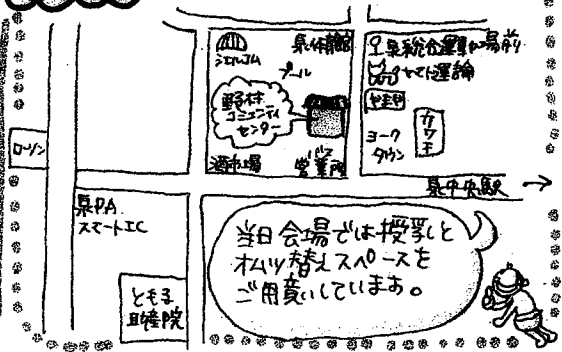 シェルコム
泉体育館
プール
野村
コミュニティ
センター
酒市場
バス
営業所
泉総合運動場前
ヤマト運輸
ヨーク
タウン
カワチ
泉中央駅 →
ローソン
泉PA
スマートIC
ともこ
助産院
当日会場では授乳と
オムツ替えスペースを
ご用意しています。